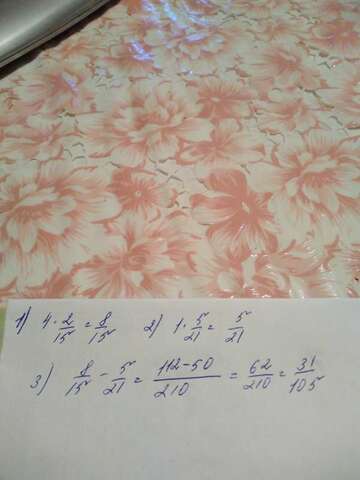 1) 4 · 2/15 = 8/15 2) 1 · 5/21 = 5/21
3) 8/15 - 5/21 = 112-50/210 = 62/210 = 31/105